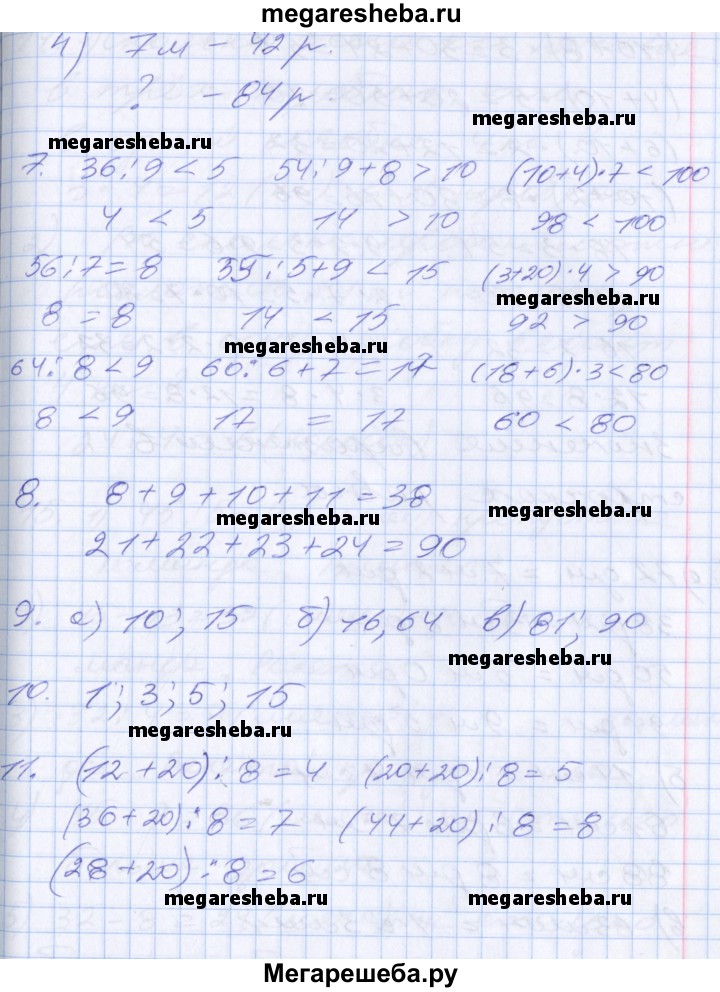 megaresheba.ru
4) 7м – 42р.
? – 84р.
megaresheba.ru
megaresheba.ru
7. 36:9<5 54:9+8>10 (10+4)·7<100
4 < 5 14 > 10 98 < 100
56:7=8 35:5+9<15 (3+20)·4>90
megaresheba.ru
8=8 14 < 15 92 > 90
megaresheba.ru
64:8<9 60:6+7=17 (18+6)·3<80
8<9 17 = 17 60 < 80
8. 8+9+10+11=38
megaresheba.ru
megaresheba.ru
21+22+23+24=90
9. а) 10; 15 б) 16, 64 в) 81; 90
megaresheba.ru
10. 1; 3; 5; 15
megaresheba.ru
11. (12+20):8=4 (20+20):8=5
(36+20):8=7 (44+20):8=8
(28+20):8=6
megaresheba.ru
megaresheba.ru
Мегарешеба.ру